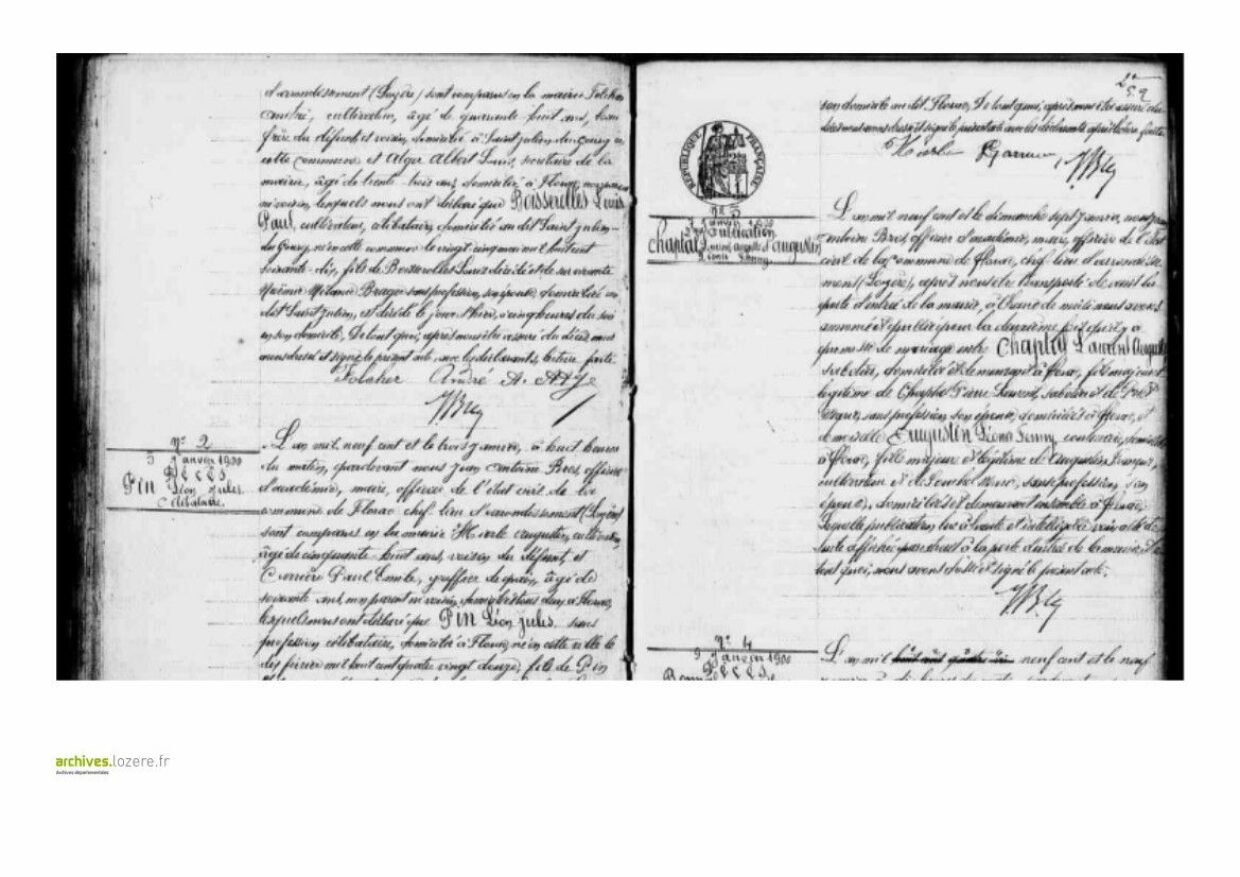 d'arrondissement (Lozère) sont comparus en la mairie Folcher
André, cultivateur, âgé de quarante huit ans, beau
frère du défunt et voisin, domicilié à Saint Julien du Gourg en
cette commune et Alger Albert Louis, secrétaire de la
mairie, âgé de trente trois ans, domicilié à Florac, non parent
ni voisin, lesquels nous ont déclaré que Boisserolles Louis
Paul, cultivateur, célibataire, domicilié au dit Saint Julien
du Gourg, né en cette commune le vingt cinq mai mil huit cent
soixante dix, fils de Boisserolles Louis décédé et de survivante
Mélanie sans profession, son épouse, domiciliée au
dit Saint Julien, est décédé le jour d'hier, à cinq heures du soir
en son domicile, De tout quoi, après nous être assuré du décès, nous
avons dressé et signé le présent acte avec les déclarants, lecture faite.
Folcher André A. Alger
JBros
N° 2
3 Janvier 1900
Décès
Pin Léon Jules.
Célibataire.
L'an mil neuf cent et le trois janvier, à huit heures
du matin, pardevant nous Jean Antoine Bros, officier
d'académie, maire, officier de l'état civil de la
commune de Florac chef lieu d'arrondissement (Lozère)
sont comparus en la mairie Augustin, cultivateur,
âgé de cinquante huit ans, voisin du défunt, et
Carrière Paul Emile, greffier de paix, âgé de
soixante ans, non parent ni voisin, domiciliés tous deux à Florac,
lesquels nous ont déclaré que Pin Léon Jules, sans
profession célibataire, domicilié à Florac, né en cette ville le
dix février mil huit cent quatre vingt douze, fils de Pin
RÉPUBLIQUE FRANÇAISE
son domicile au dit Florac, De tout quoi, après nous être assuré du
décès nous avons dressé et signé le présent acte avec les déclarants après lecture faite
JBros
N° 3
7 Janvier 1900
2me Publication
Chaptal Laurent Auguste
& Augustin
L'an mil neuf cent et le dimanche sept janvier, nous Jean
Antoine Bros, officier d'académie, maire, officier de l'état
civil de la commune de Florac, chef lieu d'arrondissement
(Lozère), après nous être transporté devant la
porte d'entrée de la mairie, à l'heure de midi nous avons
annoncé et publié pour la deuxième fois qu'il y a
promesse de mariage entre Chaptal Laurent Auguste
sabotier, domicilié et demeurant à Florac, fils majeur et
légitime de Chaptal Pierre Laurent, sabotier et de
sans profession son épouse, domiciliés à Florac, et
demoiselle Augustin couturière, domiciliée
à Florac, fille majeure et légitime de Augustin
cultivateur et de sans profession, son
épouse, domiciliés et demeurant ensemble à Florac,
Laquelle publication, lue à haute et intelligible voix a été de
suite affichée par extrait à la porte d'entrée de la mairie, De
tout quoi, nous avons dressé et signé le présent acte.
JBros
N° 4
9 Janvier 1900
Décès
L'an mil neuf cent et le neuf
archives.lozere.fr
Archives départementales